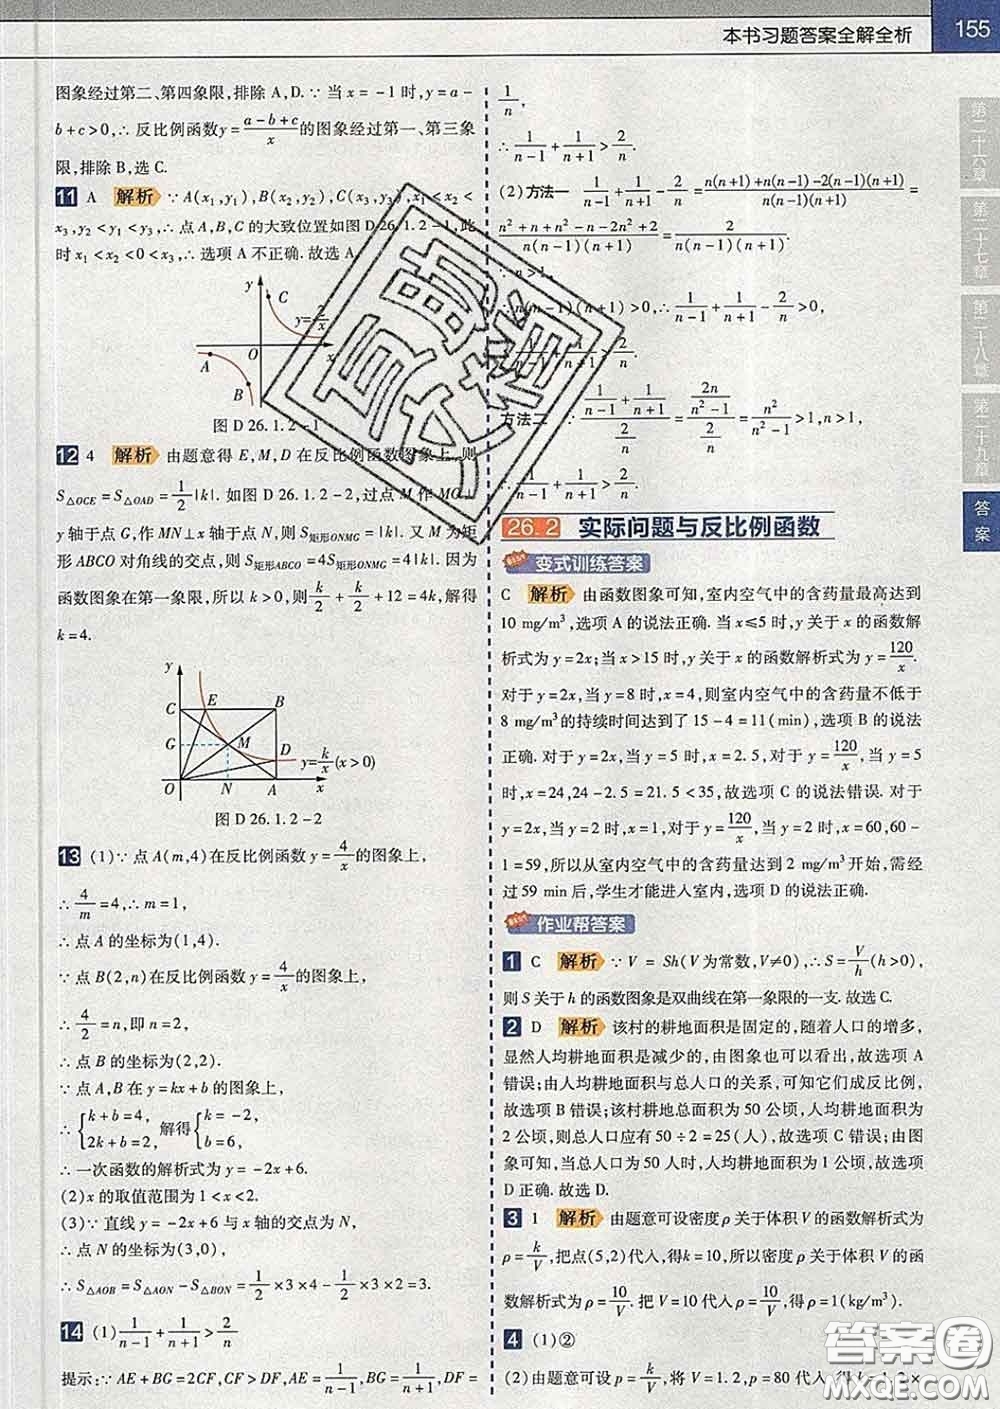 本书习题答案全解全析
155
图象经过第二、第四象限,排除 A,D.∵ 当 x = -1 时,y = a -
b + c > 0,∴ 反比例函数y = (a-b+c)/x 的图象经过第一、第三象
限,排除 B,选 C.
11 A 解析 ∵ A(x₁,y₁),B(x₂,y₂),C(x₃,y₃),x₁ < x₂ <
x₃,y₂ < y₁ < y₃,∴ 点 A,B,C 的大致位置如图 D 26.1.2-1,此
时 x₁ < x₂ < 0 < x₃,∴ 选项 A 不正确.故选 A.
y
C
y = 2/x
A
O
x
B
图 D 26.1.2-1
12 4 解析 由题意得 E,M,D 在反比例函数图象上,则
S△OCE = S△OAD = 1/2 |k|. 如图 D 26.1.2-2,过点 M 作 MG⊥
y 轴于点 G,作 MN⊥x 轴于点 N,则 S矩形ONMG = |k|. 又 M 为矩
形 ABCO 对角线的交点,则 S矩形ABCO = 4S矩形ONMG = 4|k|,因为
函数图象在第一象限,所以 k > 0,则 k/2 + k/2 + 12 = 4k,解得
k = 4.
y
C E B
G M D
y = k/x (x > 0)
O N A x
图 D 26.1.2-2
13 (1)∵ 点 A(m,4)在反比例函数 y = 4/x 的图象上,
∴ 4/m = 4,∴ m = 1,
∴ 点 A 的坐标为(1,4).
∵ 点 B(2,n)在反比例函数 y = 4/x 的图象上,
∴ 4/2 = n,即 n = 2,
∴ 点 B 的坐标为(2,2).
∵ 点 A,B 在 y = kx + b 的图象上,
∴ {k + b = 4, 2k + b = 2, 解得 {k = -2, b = 6,
∴ 一次函数的解析式为 y = -2x + 6.
(2)x 的取值范围为 1 < x < 2.
(3)∵ 直线 y = -2x + 6 与 x 轴的交点为 N,
∴ 点 N 的坐标为(3,0),
∴ S△AOB = S△AON - S△BON = 1/2 × 3 × 4 - 1/2 × 3 × 2 = 3.
14 (1) 1/(n-1) + 1/(n+1) > 2/n
提示:∵ AE + BG = 2CF,CF > DF,AE = 1/(n-1),BG = 1/(n+1),DF =
1/n,
∴ 1/(n-1) + 1/(n+1) > 2/n.
(2) 方法一 1/(n-1) + 1/(n+1) - 2/n = (n(n+1)+n(n-1)-2(n-1)(n+1))/(n(n-1)(n+1)) =
(n²+n+n²-n-2n²+2)/(n(n-1)(n+1)) = 2/(n(n-1)(n+1)).
∵ n > 1,
∴ n(n-1)(n+1) > 0,∴ 1/(n-1) + 1/(n+1) - 2/n > 0,
∴ 1/(n-1) + 1/(n+1) > 2/n.
方法二 ∵ (1/(n-1) + 1/(n+1))/(2/n) = (2n/(n²-1))/(2/n) = n²/(n²-1) > 1,n > 1,
∴ 1/(n-1) + 1/(n+1) > 2/n.
26.2 实际问题与反比例函数
变式训练答案
C 解析 由函数图象可知,室内空气中的含药量最高达到
10 mg/m³,选项 A 的说法正确. 当 x ≤ 5 时,y 关于 x 的函数解
析式为 y = 2x;当 x > 15 时,y 关于 x 的函数解析式为 y = 120/x.
对于 y = 2x,当 y = 8 时,x = 4,则室内空气中的含药量不低于
8 mg/m³的持续时间达到了 15 - 4 = 11(min),选项 B 的说法
正确. 对于 y = 2x,当 y = 5 时,x = 2.5,对于 y = 120/x,当 y = 5
时,x = 24,24 - 2.5 = 21.5 < 35,故选项 C 的说法错误. 对于
y = 2x,当 y = 2 时,x = 1,对于 y = 120/x,当 y = 2 时,x = 60,60 -
1 = 59,所以从室内空气中的含药量达到 2 mg/m³开始,需经
过 59 min 后,学生才能进入室内,选项 D 的说法正确.
作业帮答案
1 C 解析 ∵ V = Sh(V 为常数,V≠0),∴ S = V/h (h > 0),
则 S 关于 h 的函数图象是双曲线在第一象限的一支. 故选 C.
2 D 解析 该村的耕地面积是固定的,随着人口的增多,
显然人均耕地面积是减少的,由图象也可以看出,故选项 A
错误;由人均耕地面积与总人口的关系,可知它们成反比例,
故选项 B 错误;该村耕地总面积为 50 公顷,人均耕地面积为
2 公顷,则总人口应有 50 ÷ 2 = 25(人),故选项 C 错误;由图
象可知,当总人口为 50 人时,人均耕地面积为 1 公顷,故选项
D 正确. 故选 D.
3 1 解析 由题意可设密度 ρ 关于体积 V 的函数解析式为
ρ = k/V,把点(5,2)代入,得 k = 10,所以密度 ρ 关于体积 V 的函
数解析式为 ρ = 10/V. 把 V = 10 代入 ρ = 10/V,得 ρ = 1(kg/m³).
4 (1)②
(2)由题意可设 p = k/V,将 V = 1.2,p = 80 代入,得 k = 1.2 ×
第二十六章
第二十七章
第二十八章
第二十九章
答案
答案圈
MXQE.COM